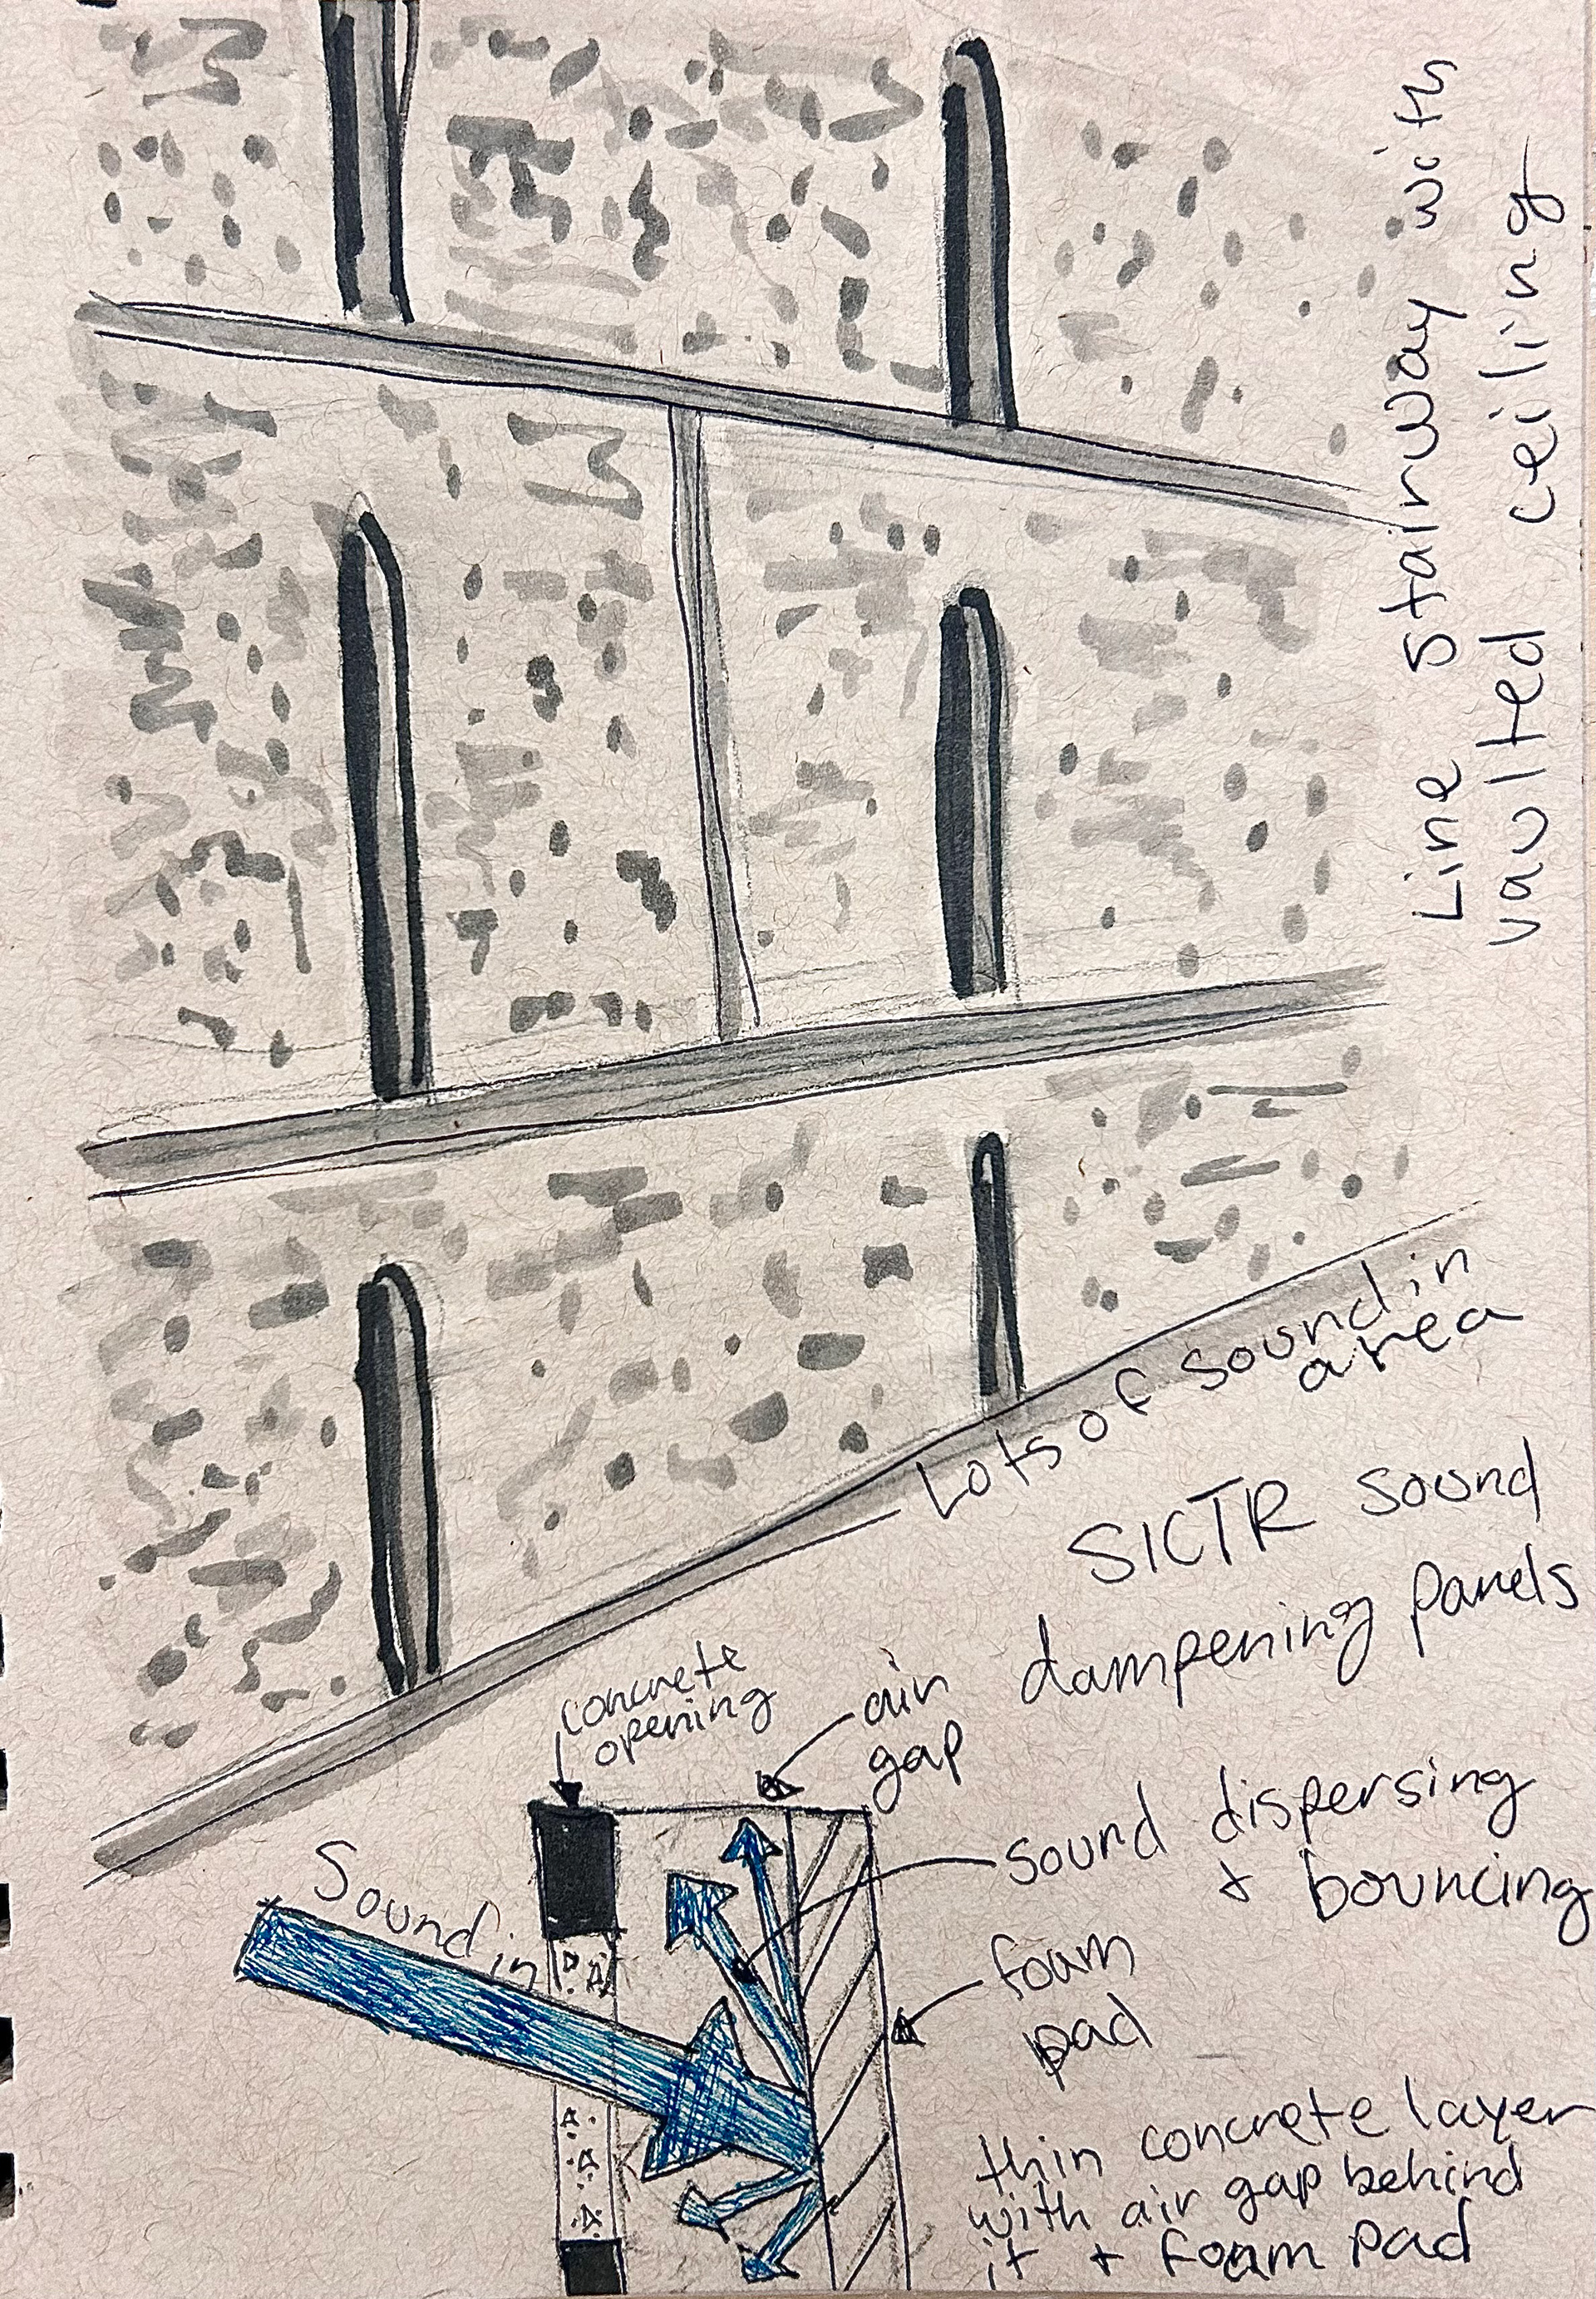 Line stairway with
vaulted ceiling
Lots of sound in
area
SICTR sound
dampening panels
concrete
opening
air
gap
Sound in
sound dispersing
+ bouncing
foam
pad
thin concrete layer
with air gap behind
it + foam pad